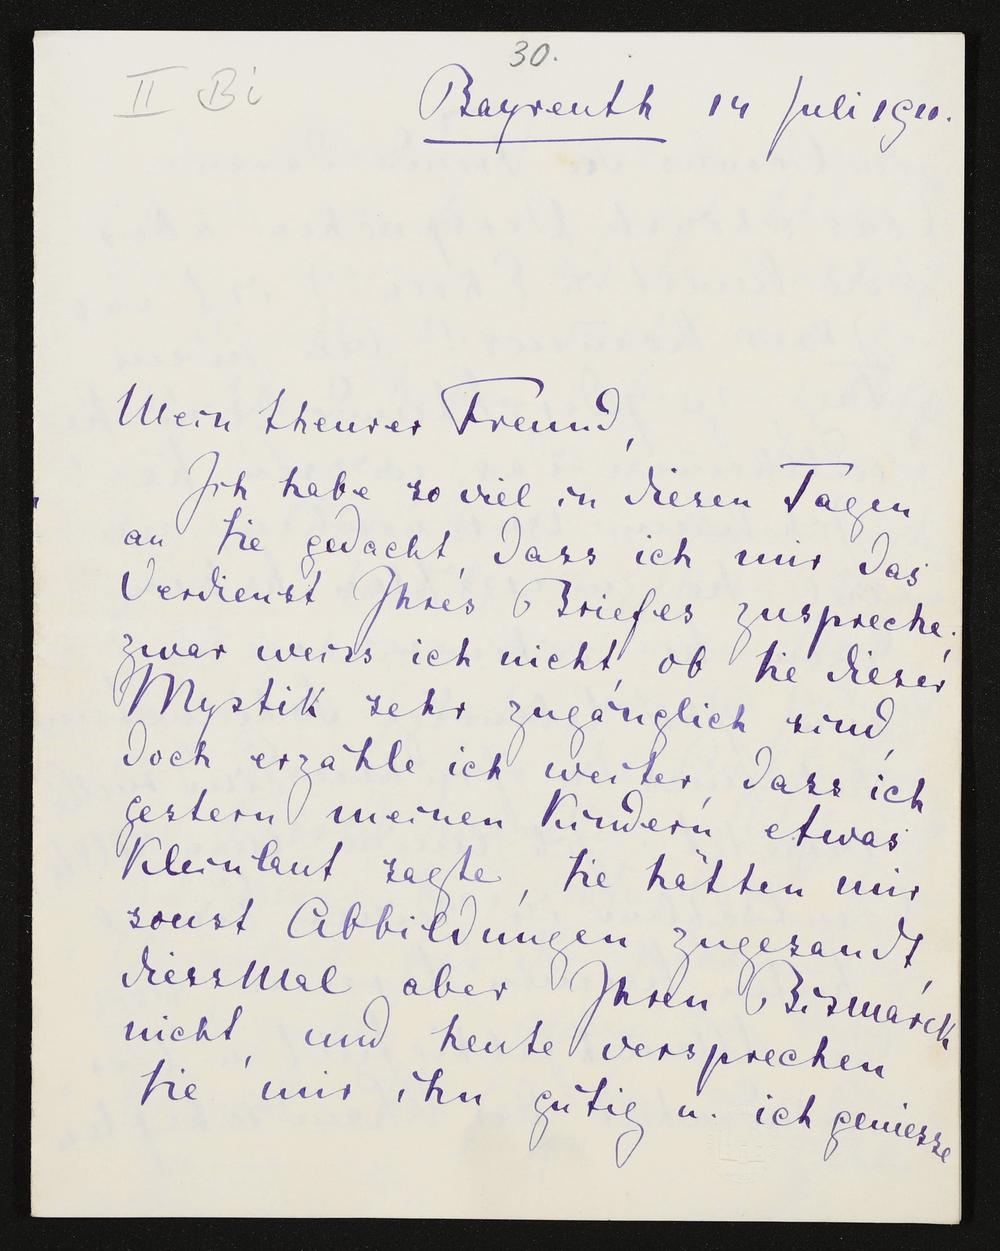 30.
II Bi
Bayreuth 14 Juli 1910.
Mein theurer Freund,
Ich habe so viel in diesen Tagen
an Sie gedacht, dass ich mir das
Verdienst Ihres Briefes zuspreche;
zwar weiss ich nicht, ob Sie dieser
Mystik sehr zugänglich sind,
doch erzähle ich weiter, dass ich
gestern meinen Kindern etwas
kleinlaut sagte, Sie hätten mir
sonst Abbildungen zugesandt,
diessmal aber Ihren Bismarck
nicht, und heute versprechen
Sie mir ihn gütig u. ich geniesse